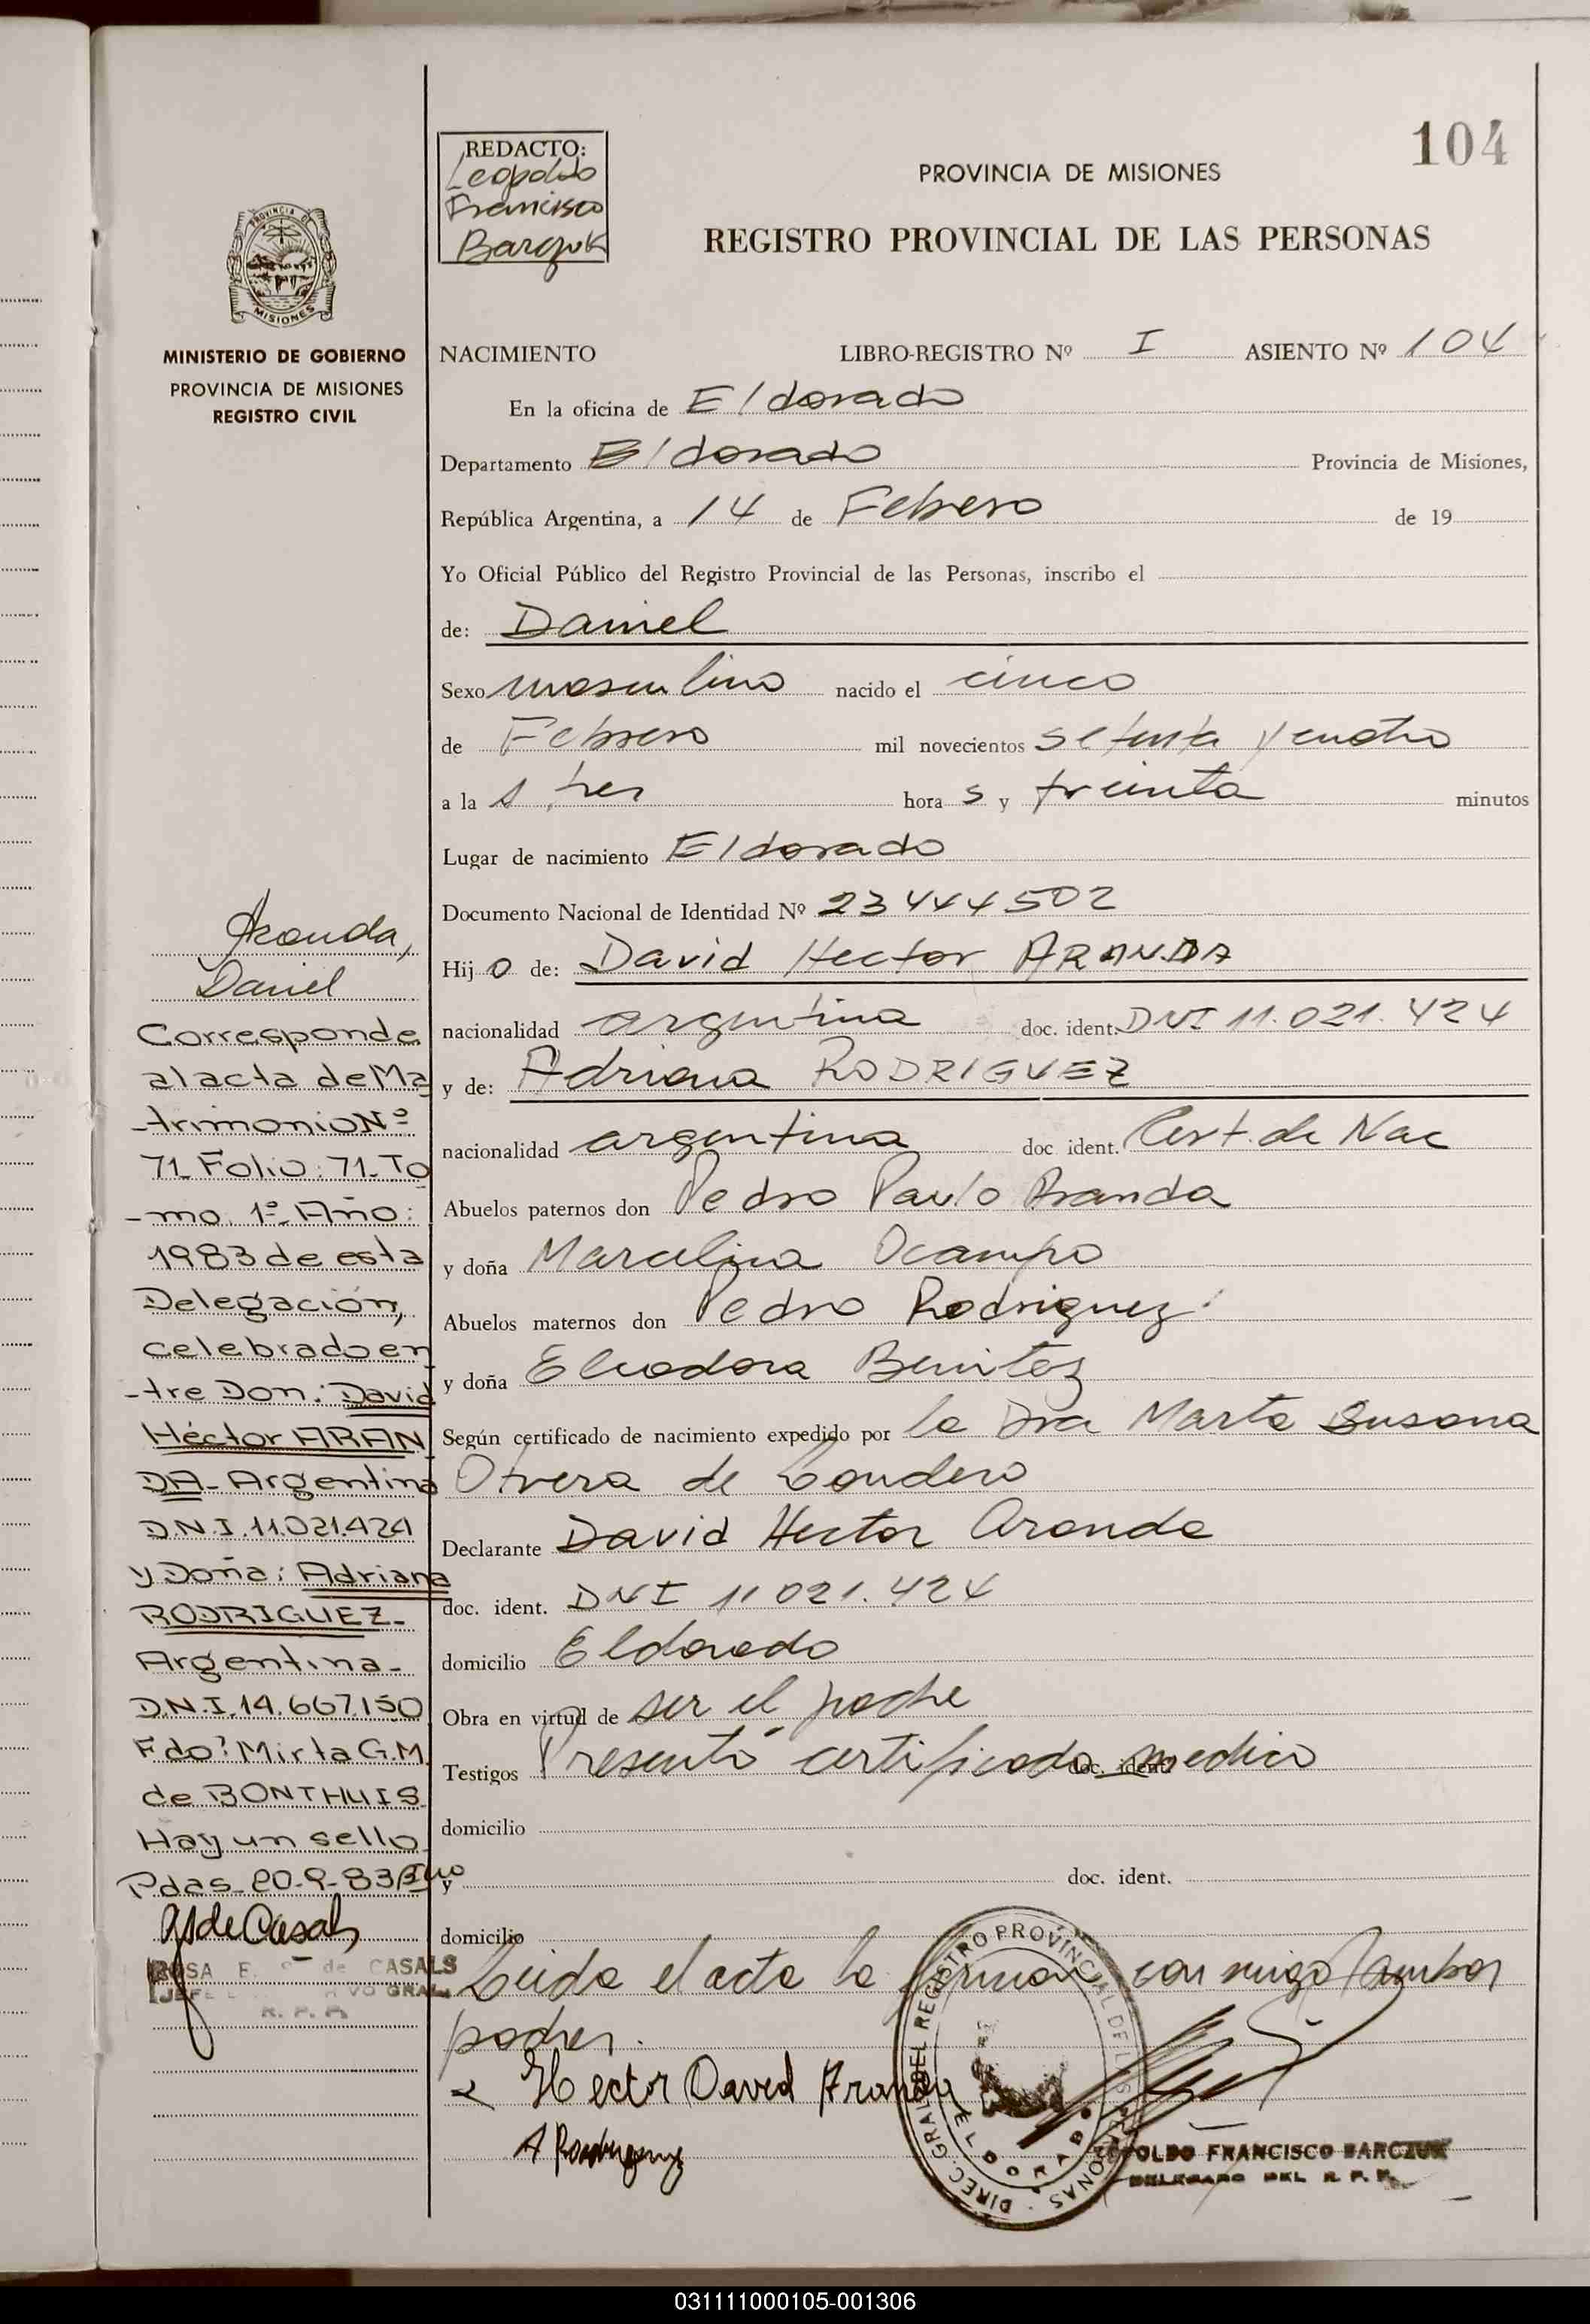 104
REDACTO:
Leopoldo
Francisco
Barczuk
PROVINCIA DE MISIONES
REGISTRO PROVINCIAL DE LAS PERSONAS
PROVINCIA DE
MISIONES
MINISTERIO DE GOBIERNO
PROVINCIA DE MISIONES
REGISTRO CIVIL
NACIMIENTO LIBRO-REGISTRO Nº I ASIENTO Nº 104
En la oficina de Eldorado
Departamento Eldorado Provincia de Misiones,
República Argentina, a 14 de Febrero de 19
Yo Oficial Público del Registro Provincial de las Personas, inscribo el
de: Daniel
Sexo masculino nacido el cinco
de Febrero mil novecientos setenta y cuatro
a la s tres hora s y treinta minutos
Lugar de nacimiento Eldorado
Documento Nacional de Identidad Nº 23444502
Hij o de: David Hector ARANDA
nacionalidad argentina doc. ident. DNI 11.021.424
y de: Adriana RODRIGUEZ
nacionalidad argentina doc ident. Cert. de Nac
Abuelos paternos don Pedro Paulo Aranda
y doña Marcelina Ocampo
Abuelos maternos don Pedro Rodriguez
y doña Eleodora Benitez
Según certificado de nacimiento expedido por la Dra Marta Susana
de Londero
Declarante David Hector Aranda
doc. ident. DNI 11 021.424
domicilio Eldorado
Obra en virtud de ser el padre
Testigos Presentó certificado medico doc. ident.
domicilio
y doc. ident.
domicilio
Leida el acta la firman conmigo ambos
padres.
Hector David Aranda
A Rodriguez
DIREC. GRAL. DEL REGISTRO PROVINCIAL DE LAS PERSONAS
ELDORADO
LEOPOLDO FRANCISCO BARCZUK
DELEGADO DEL R. P. P.
Aranda,
Daniel
Corresponde
al acta de Ma
-trimonio Nº
71 Folio: 71. To
-mo. 1º. Año:
1983 de esta
Delegación,
celebrado en
-tre Don: David
Héctor ARAN
DA- Argentino
D.N.I. 11.021.424
y Doña: Adriana
RODRIGUEZ-
Argentina-
D.N.I. 14.667.150
Fdo: Mirta G.M.
de BONTHUIS
Hay un sello
Pdas. 20-9-83
de Casals
ROSA E. de CASALS
JEFE VO GRAL.
R. P. P.
031111000105-001306